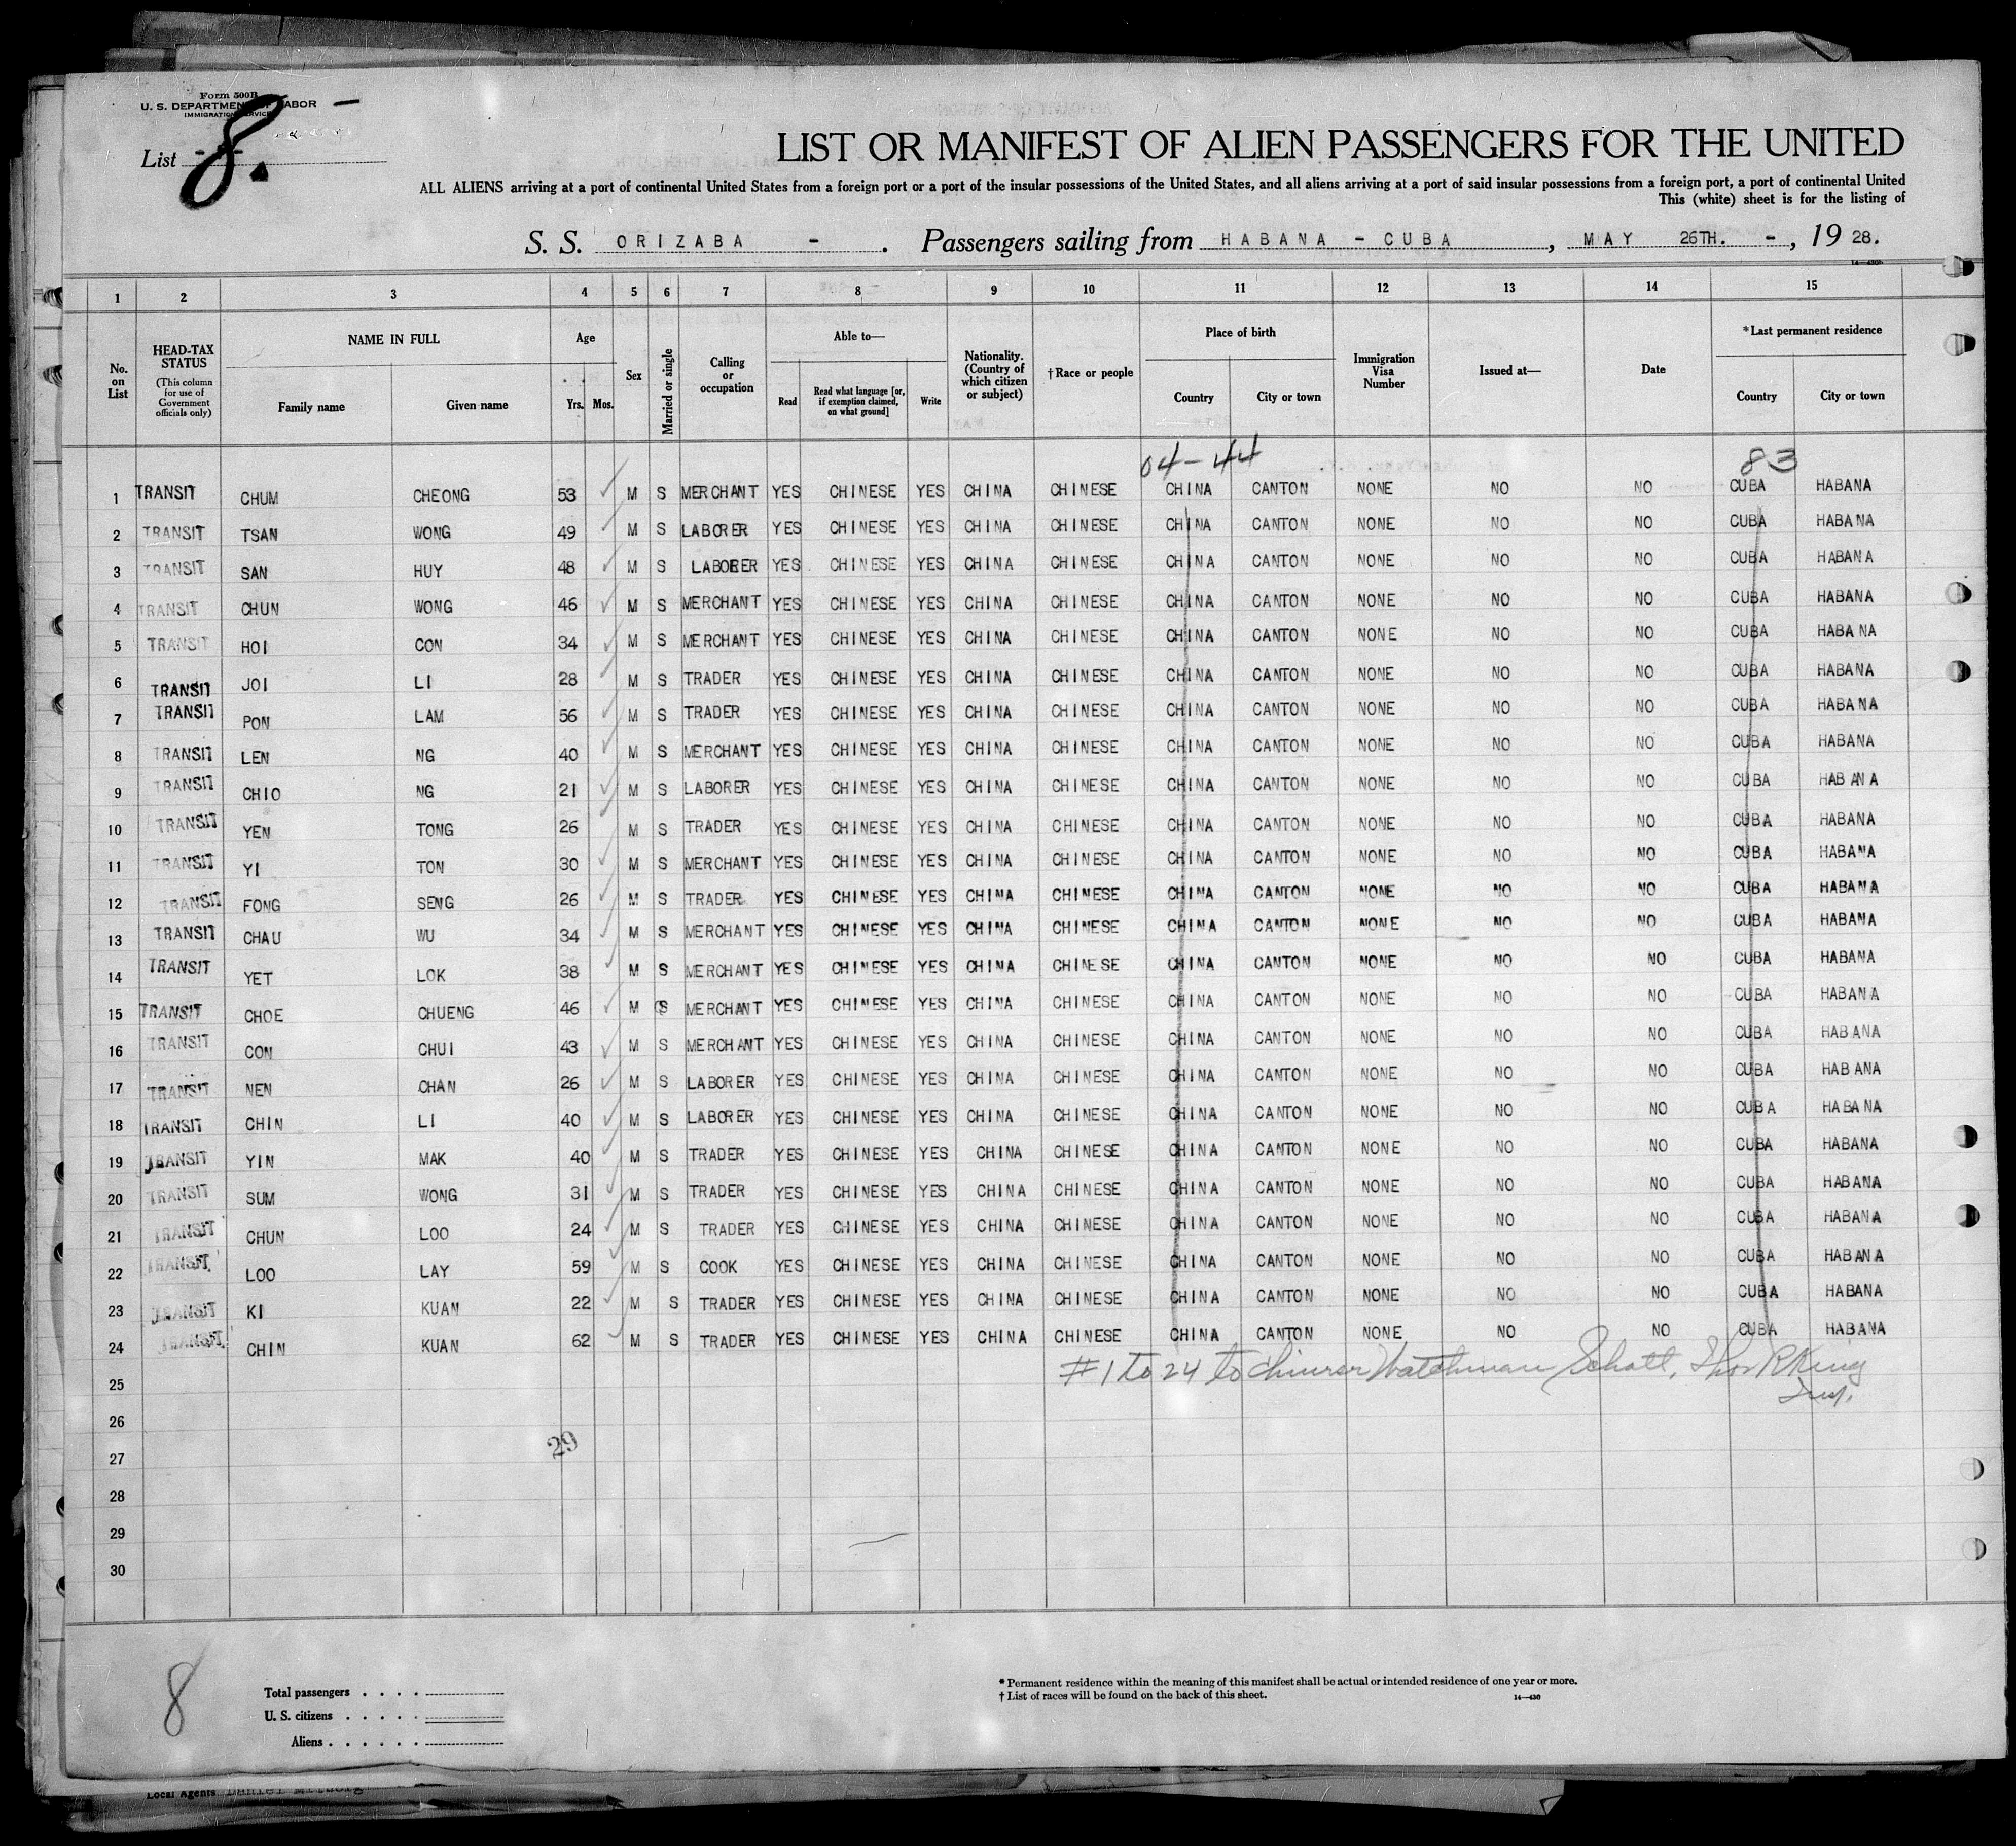 Form 500B
U. S. DEPARTMENT OF LABOR
IMMIGRATION SERVICE
List 8.
LIST OR MANIFEST OF ALIEN PASSENGERS FOR THE UNITED
ALL ALIENS arriving at a port of continental United States from a foreign port or a port of the insular possessions of the United States, and all aliens arriving at a port of said insular possessions from a foreign port, a port of continental United
This (white) sheet is for the listing of
S. S. ORIZABA - . Passengers sailing from HABANA - CUBA , MAY 26TH. - , 19 28.
1 2 3 4 5 6 7 8 9 10 11 12 13 14 15
No. on List
HEAD-TAX STATUS (This column for use of Government officials only)
NAME IN FULL
Family name Given name
Age
Yrs. Mos.
Sex
Married or single
Calling or occupation
Able to—
Read
Read what language [or, if exemption claimed, on what ground]
Write
Nationality. (Country of which citizen or subject)
†Race or people
Place of birth
Country City or town
Immigration Visa Number
Issued at—
Date
*Last permanent residence
Country City or town
04-44 83
1 TRANSIT CHUM CHEONG 53 M S MERCHANT YES CHINESE YES CHINA CHINESE CHINA CANTON NONE NO NO CUBA HABANA
2 TRANSIT TSAN WONG 49 M S LABORER YES CHINESE YES CHINA CHINESE CHINA CANTON NONE NO NO CUBA HABANA
3 TRANSIT SAN HUY 48 M S LABORER YES CHINESE YES CHINA CHINESE CHINA CANTON NONE NO NO CUBA HABANA
4 TRANSIT CHUN WONG 46 M S MERCHANT YES CHINESE YES CHINA CHINESE CHINA CANTON NONE NO NO CUBA HABANA
5 TRANSIT HOI CON 34 M S MERCHANT YES CHINESE YES CHINA CHINESE CHINA CANTON NONE NO NO CUBA HABANA
6 TRANSIT JOI LI 28 M S TRADER YES CHINESE YES CHINA CHINESE CHINA CANTON NONE NO NO CUBA HABANA
7 TRANSIT PON LAM 56 M S TRADER YES CHINESE YES CHINA CHINESE CHINA CANTON NONE NO NO CUBA HABANA
8 TRANSIT LEN NG 40 M S MERCHANT YES CHINESE YES CHINA CHINESE CHINA CANTON NONE NO NO CUBA HABANA
9 TRANSIT CHIO NG 21 M S LABORER YES CHINESE YES CHINA CHINESE CHINA CANTON NONE NO NO CUBA HABANA
10 TRANSIT YEN TONG 26 M S TRADER YES CHINESE YES CHINA CHINESE CHINA CANTON NONE NO NO CUBA HABANA
11 TRANSIT YI TON 30 M S MERCHANT YES CHINESE YES CHINA CHINESE CHINA CANTON NONE NO NO CUBA HABANA
12 TRANSIT FONG SENG 26 M S TRADER YES CHINESE YES CHINA CHINESE CHINA CANTON NONE NO NO CUBA HABANA
13 TRANSIT CHAU WU 34 M S MERCHANT YES CHINESE YES CHINA CHINESE CHINA CANTON NONE NO NO CUBA HABANA
14 TRANSIT YET LOK 38 M S MERCHANT YES CHINESE YES CHINA CHINESE CHINA CANTON NONE NO NO CUBA HABANA
15 TRANSIT CHOE CHUENG 46 M S MERCHANT YES CHINESE YES CHINA CHINESE CHINA CANTON NONE NO NO CUBA HABANA
16 TRANSIT CON CHUI 43 M S MERCHANT YES CHINESE YES CHINA CHINESE CHINA CANTON NONE NO NO CUBA HABANA
17 TRANSIT NEN CHAN 26 M S LABORER YES CHINESE YES CHINA CHINESE CHINA CANTON NONE NO NO CUBA HABANA
18 TRANSIT CHIN LI 40 M S LABORER YES CHINESE YES CHINA CHINESE CHINA CANTON NONE NO NO CUBA HABANA
19 TRANSIT YIN MAK 40 M S TRADER YES CHINESE YES CHINA CHINESE CHINA CANTON NONE NO NO CUBA HABANA
20 TRANSIT SUM WONG 31 M S TRADER YES CHINESE YES CHINA CHINESE CHINA CANTON NONE NO NO CUBA HABANA
21 TRANSIT CHUN LOO 24 M S TRADER YES CHINESE YES CHINA CHINESE CHINA CANTON NONE NO NO CUBA HABANA
22 TRANSIT LOO LAY 59 M S COOK YES CHINESE YES CHINA CHINESE CHINA CANTON NONE NO NO CUBA HABANA
23 TRANSIT KI KUAN 22 M S TRADER YES CHINESE YES CHINA CHINESE CHINA CANTON NONE NO NO CUBA HABANA
24 TRANSIT CHIN KUAN 62 M S TRADER YES CHINESE YES CHINA CHINESE CHINA CANTON NONE NO NO CUBA HABANA
25 #1 to 24 to Chinese Watchman Schatt, Thos R King
Insp.
26
27 29
28
29
30
8
Total passengers
U. S. citizens
Aliens
* Permanent residence within the meaning of this manifest shall be actual or intended residence of one year or more.
† List of races will be found on the back of this sheet. 14—430
Local Agents Daniel